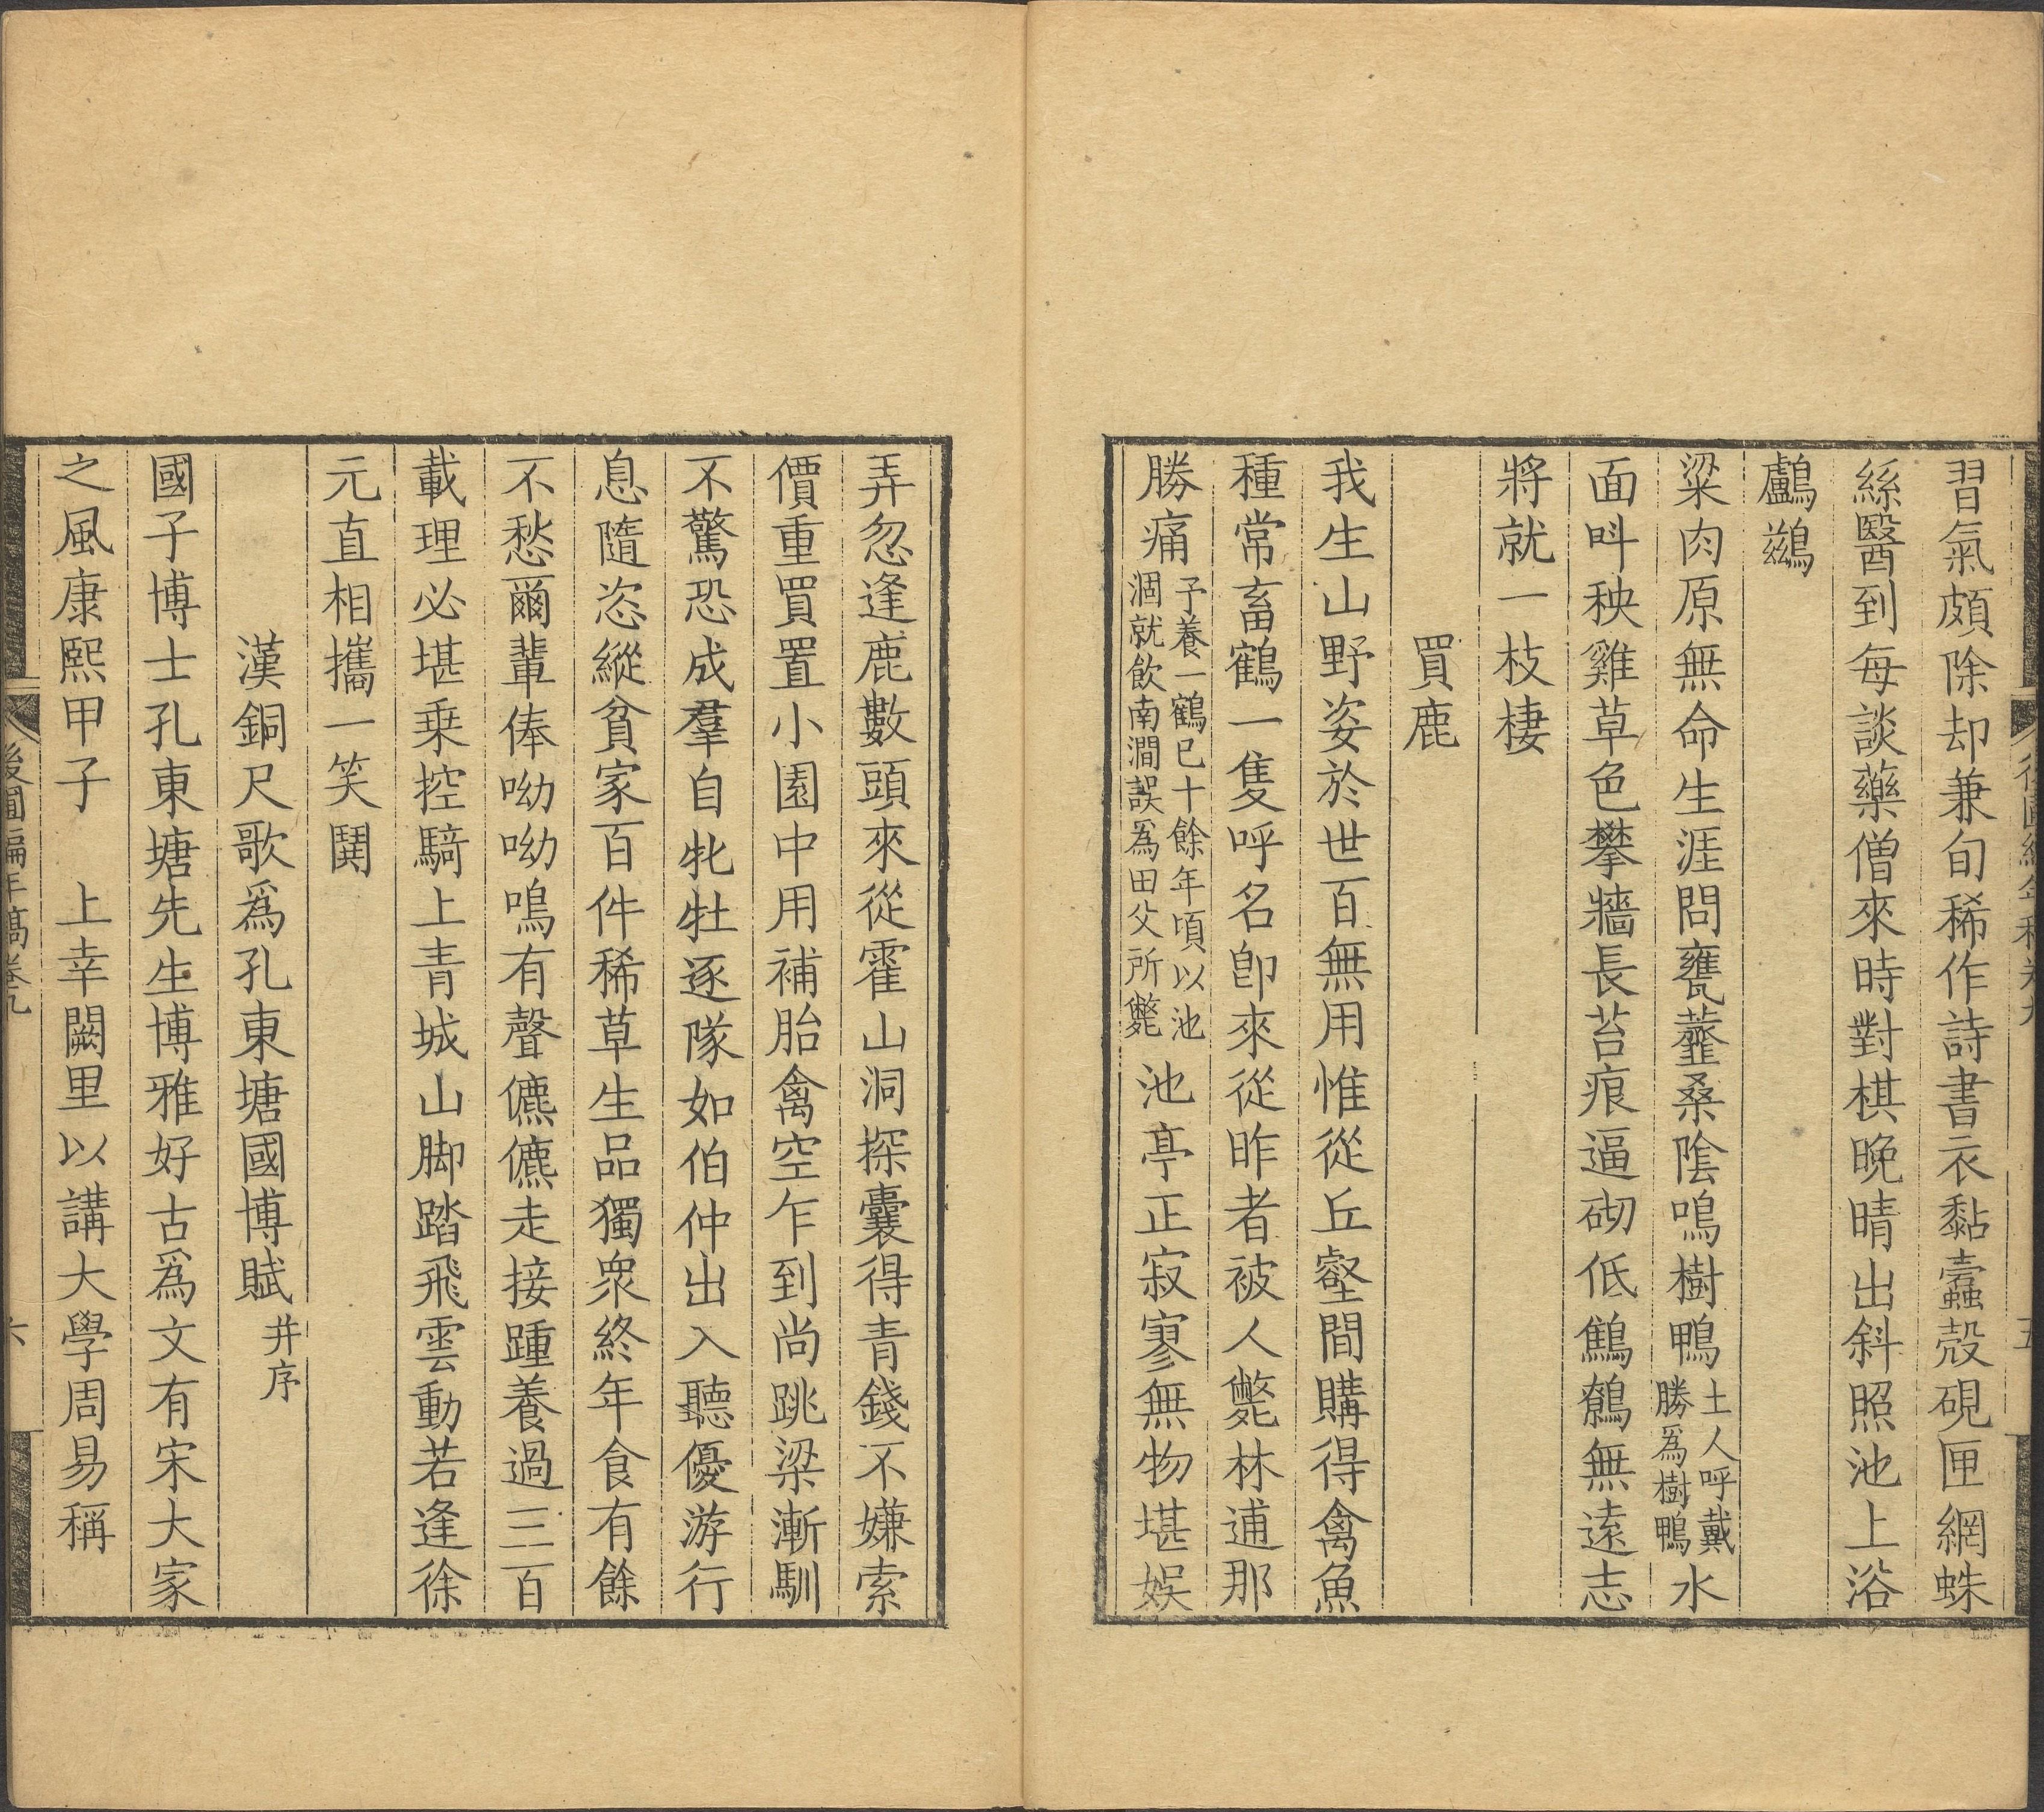 習氣頗除却兼旬稀作詩書衣黏蠧殻硯匣網蛛
絲醫到每談藥僧來時對棋晚晴出斜照池上浴
鸕鷀
粱肉原無命生涯問甕虀桑隂鳴樹鴨土人呼戴勝爲樹鴨水
面呌秧雞草色攀牆長苔痕逼砌低鷦鷯無遠志
將就一枝棲
買鹿
我生山野姿於世百無用惟從丘壑間購得禽魚
種常畜鶴一隻呼名卽來從昨者被人斃林逋那
勝痛予養一鶴已十餘年頃以池涸就飲南澗誤爲田父所斃池亭正寂寥無物堪娛
弄忽逢鹿數頭來從霍山洞探囊得青錢不嫌索
價重買置小園中用補胎禽空乍到尚跳梁漸馴
不驚恐成羣自牝牡逐隊如伯仲出入聽優游行
息隨恣縱貧家百件稀草生品獨衆終年食有餘
不愁爾輩俸呦呦鳴有聲儦儦走接踵養過三百
載理必堪乗控騎上青城山脚踏飛雲動若逢徐
元直相攜一笑鬨
漢銅尺歌爲孔東塘國博賦并序
國子博士孔東塘先生博雅好古爲文有宋大家
之風康熙甲子　上幸闕里以講大學周易稱
後圃編年稿卷九
六